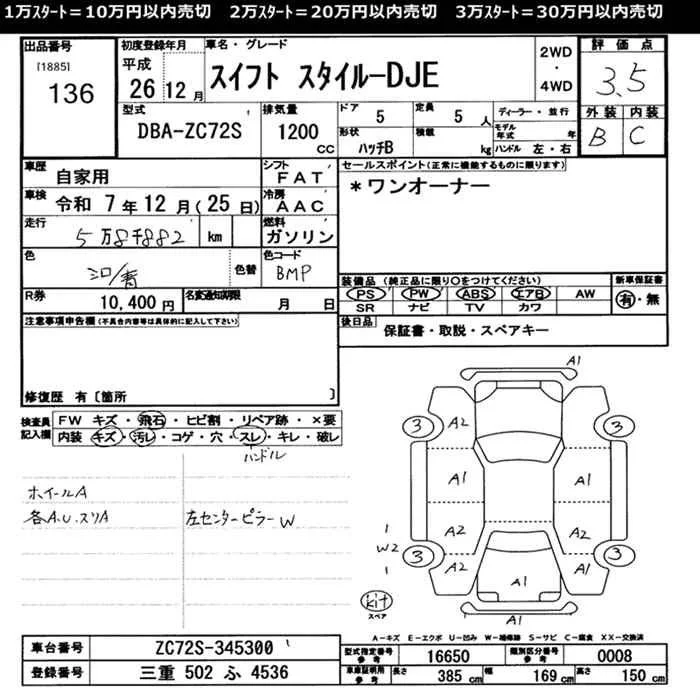 1万ｽﾀｰﾄ＝10万円以内売切　2万ｽﾀｰﾄ＝20万円以内売切　3万ｽﾀｰﾄ＝30万円以内売切
出品番号
[1885]
136
初度登録年月
平成
26 12月
車名・グレード
スイフト スタイル－DJE
2WD
・
4WD
評価点
3.5
外装 内装
B C
型式
DBA-ZC72S
排気量
1200
CC
ドア
5
定員
5 人
形状
ハッチB
積載
kg
ディーラー・並行
モデル年式 年
ハンドル 左・右
車歴
自家用
シフト
FAT
車検
令和 7年 12月(25日)
冷房
AAC
走行
5万8千882 km
燃料
ガソリン
色
色替
色コード
BMP
R券
10,400円
名変通知期限
月 日
セールスポイント(正常に機能するものに限ります)
*ワンオーナー
装備品 (純正品に限り○をつけてください)
PS PW ABS エアB AW
SR ナビ TV カワ
新車保証書
有・無
後日品
保証書・取説・スペアキー
注意事項申告欄(不具合内容等は具体的に記入して下さい)
修復歴 有〔箇所 〕
検査員記入欄
FW キズ・飛石・ヒビ割・リペア跡・×要
内装 キズ・汚レ・コゲ・穴・スレ・キレ・破レ
ハンドル
ホイールA
各A.U.スリA
左センターピラーW
A1
3 A2 3
A1 A1
1
W2
1
A2 A2
3 A2 A1 3
A1
A1
kit
スペア
A－キズ E－エクボ U－凹み W－補修跡 S－サビ C－腐食 XX－交換済
車台番号
ZC72S-345300
登録番号
三重 502 ふ 4536
型式指定番号
参考
16650
類別区分番号
参考
0008
車庫証明用
参考
長さ 385 cm
幅 169 cm
高さ 150 cm